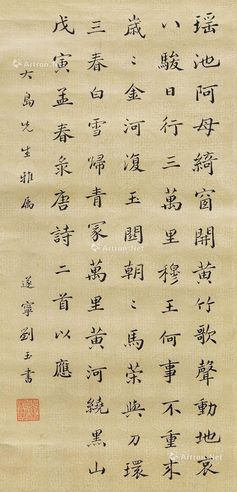 瑶池阿母綺窗開黃竹歌聲動地哀
八駿日行三萬里穆王何事不重来
歲〻金河復玉關朝〻馬策與刀環
三春白雪歸青冢萬里黃河繞黑山
戊寅孟春彔唐詩二首以應
大島先生雅屬
遂寧劉玉書